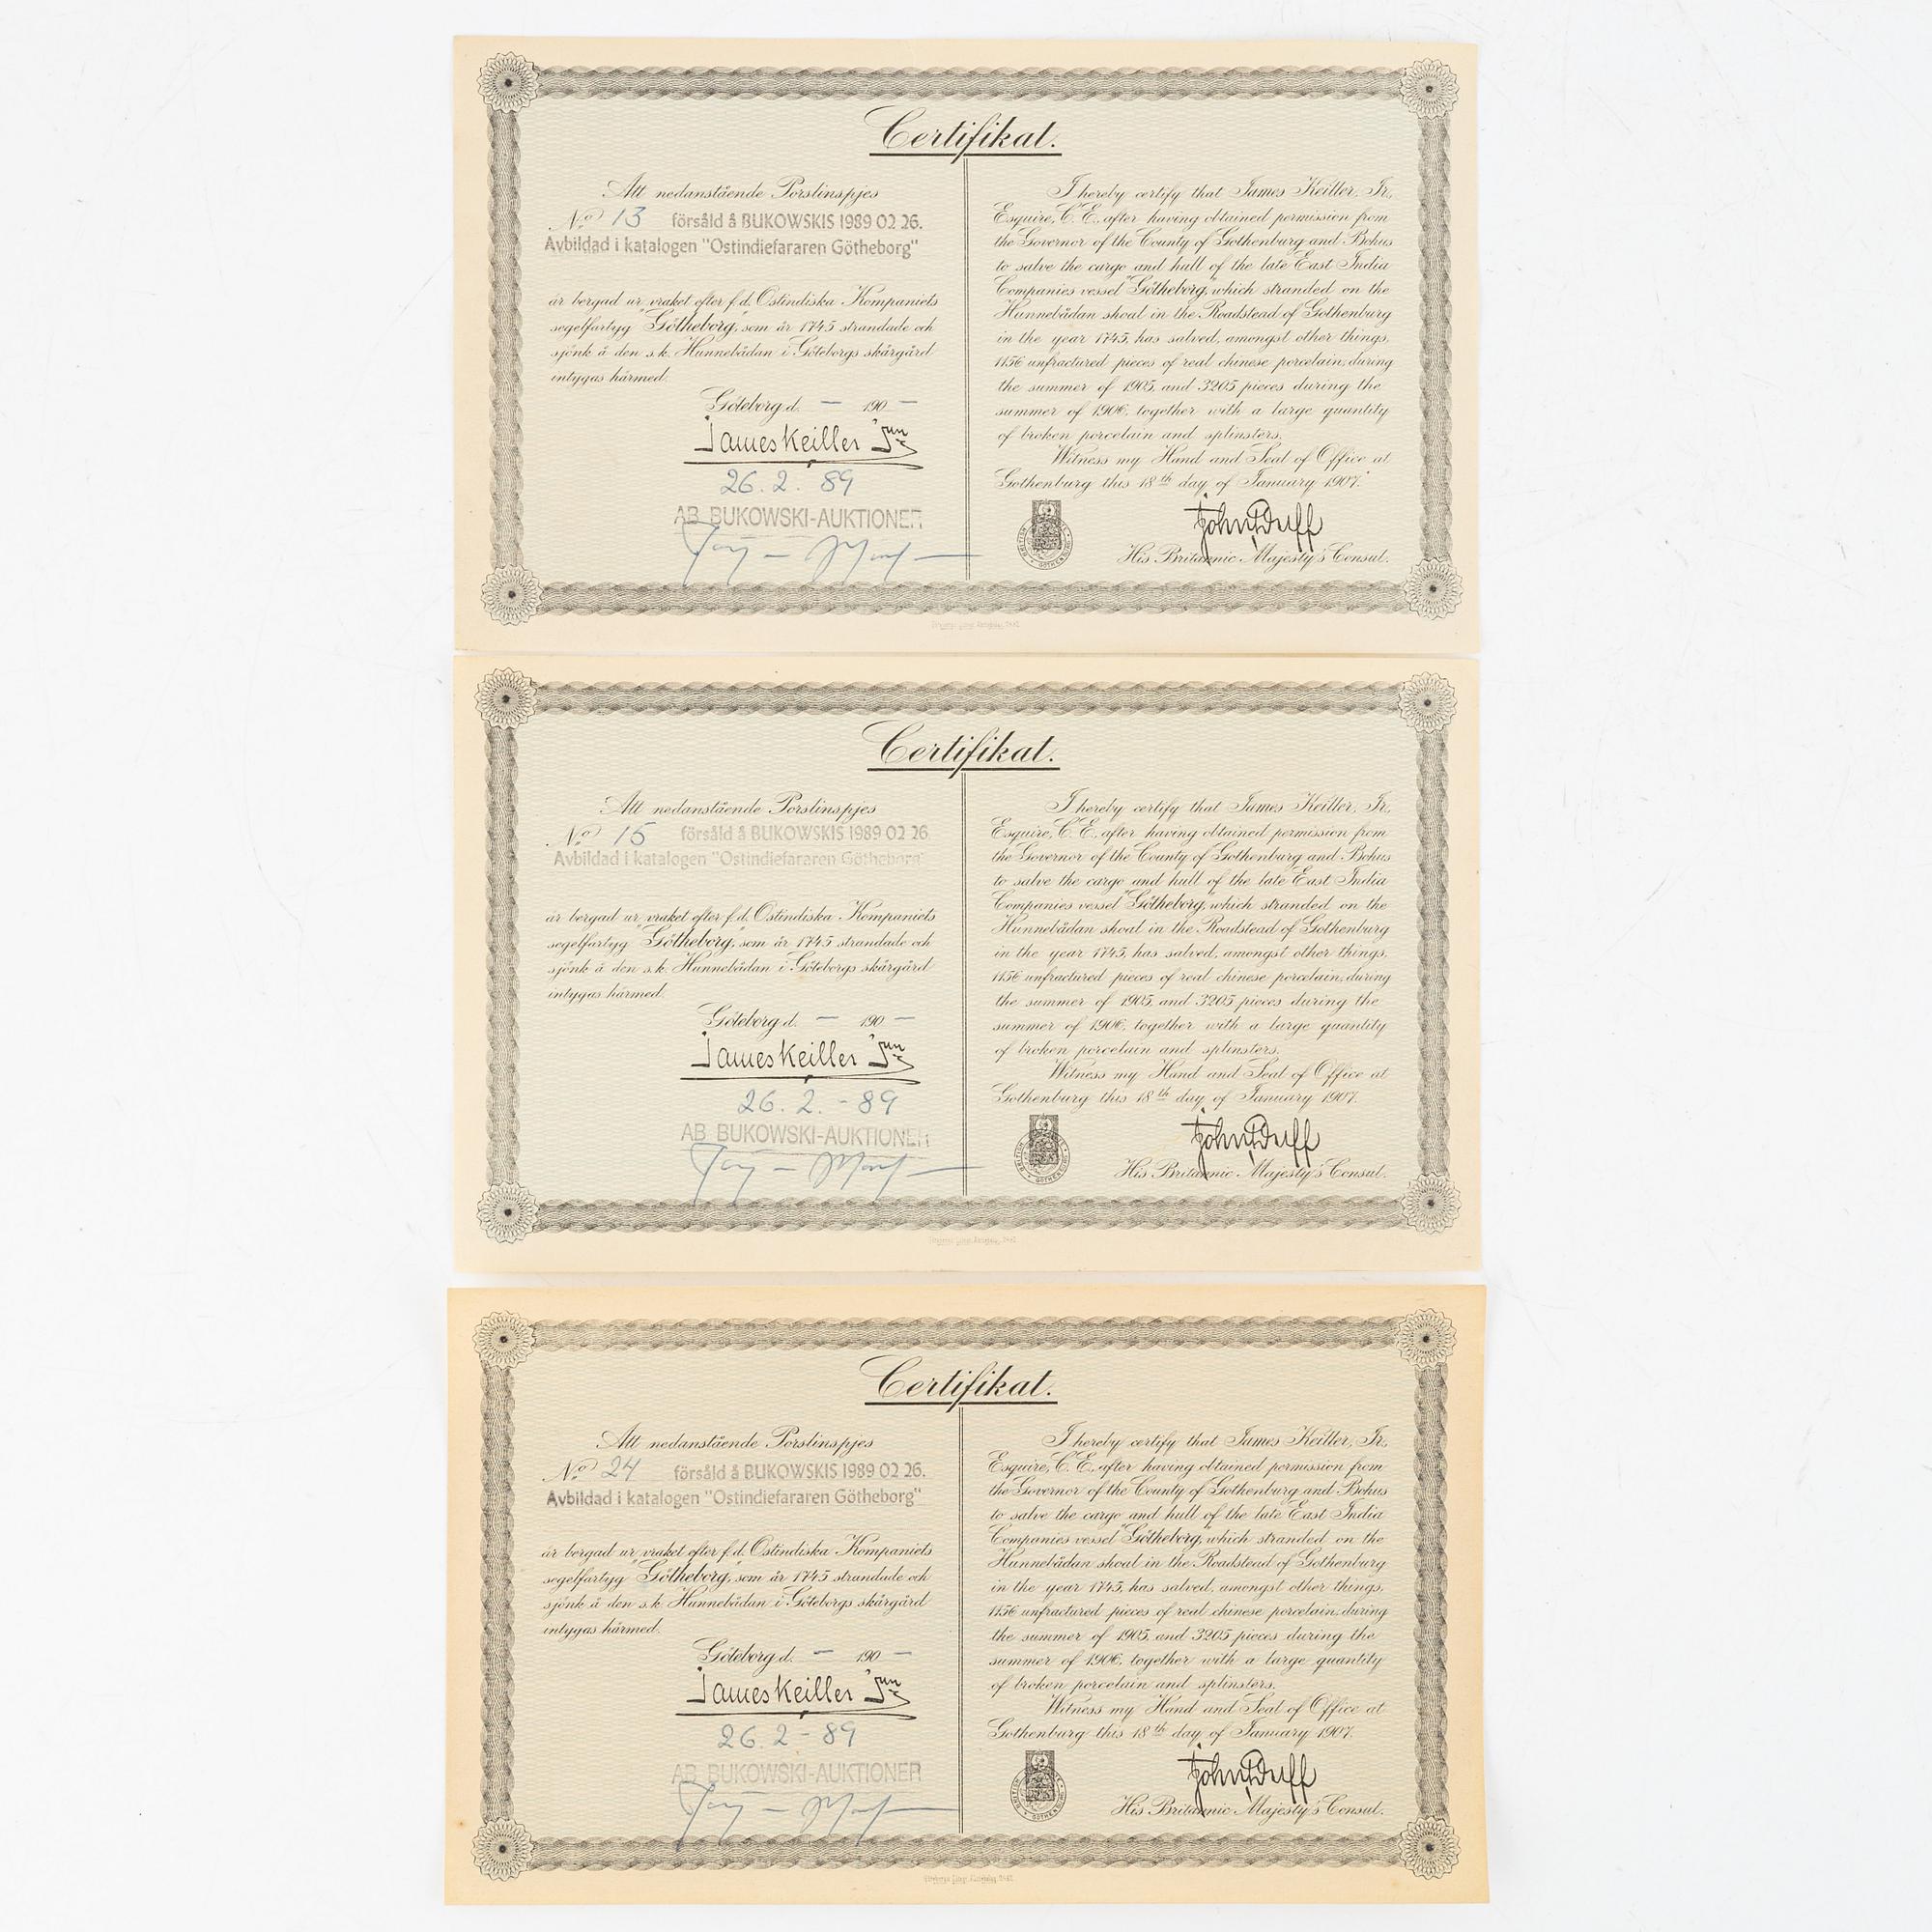 Certifikat.
Att nedanstående Porslinspjes
No 13 försåld å BUKOWSKIS 1989 02 26.
Avbildad i katalogen "Ostindiefararen Götheborg"
är bergad ur vraket efter f.d. Ostindiska Kompaniets
segelfartyg "Götheborg", som år 1745 strandade och
sjönk å den s.k. Hunnebådan i Göteborgs skärgård
intygas härmed.
Göteborg d. — 190 —
James Keiller Jun
26. 2. 89
AB BUKOWSKI-AUKTIONER
I hereby certify that James Keiller, Jr.,
Esquire, C. E., after having obtained permission from
the Governor of the County of Gothenburg and Bohus
to salve the cargo and hull of the late East India
Companies vessel "Götheborg", which stranded on the
Hunnebådan shoal in the Roadstead of Gothenburg
in the year 1745, has salved, amongst other things,
1156 unfractured pieces of real chinese porcelain, during
the summer of 1905, and 3205 pieces during the
summer of 1906, together with a large quantity
of broken porcelain and splinsters.
Witness my Hand and Seal of Office at
Gothenburg this 18th day of January 1907.
John Duff
His Britannic Majesty's Consul.
Certifikat.
Att nedanstående Porslinspjes
No 15 försåld å BUKOWSKIS 1989 02 26
Avbildad i katalogen "Ostindiefararen Götheborg"
är bergad ur vraket efter f.d. Ostindiska Kompaniets
segelfartyg "Götheborg", som år 1745 strandade och
sjönk å den s.k. Hunnebådan i Göteborgs skärgård
intygas härmed.
Göteborg d. — 190 —
James Keiller Jun
26. 2. - 89
AB BUKOWSKI-AUKTIONER
I hereby certify that James Keiller, Jr.,
Esquire, C. E., after having obtained permission from
the Governor of the County of Gothenburg and Bohus
to salve the cargo and hull of the late East India
Companies vessel "Götheborg", which stranded on the
Hunnebådan shoal in the Roadstead of Gothenburg
in the year 1745, has salved, amongst other things,
1156 unfractured pieces of real chinese porcelain, during
the summer of 1905, and 3205 pieces during the
summer of 1906, together with a large quantity
of broken porcelain and splinsters.
Witness my Hand and Seal of Office at
Gothenburg this 18th day of January 1907.
John Duff
His Britannic Majesty's Consul.
Certifikat.
Att nedanstående Porslinspjes
No 24 försåld å BUKOWSKIS 1989 02 26.
Avbildad i katalogen "Ostindiefararen Götheborg"
är bergad ur vraket efter f.d. Ostindiska Kompaniets
segelfartyg "Götheborg", som år 1745 strandade och
sjönk å den s.k. Hunnebådan i Göteborgs skärgård
intygas härmed.
Göteborg d. — 190 —
James Keiller Jun
26. 2 - 89
AB BUKOWSKI-AUKTIONER
I hereby certify that James Keiller, Jr.,
Esquire, C. E., after having obtained permission from
the Governor of the County of Gothenburg and Bohus
to salve the cargo and hull of the late East India
Companies vessel "Götheborg", which stranded on the
Hunnebådan shoal in the Roadstead of Gothenburg
in the year 1745, has salved, amongst other things,
1156 unfractured pieces of real chinese porcelain, during
the summer of 1905, and 3205 pieces during the
summer of 1906, together with a large quantity
of broken porcelain and splinsters.
Witness my Hand and Seal of Office at
Gothenburg this 18th day of January 1907.
John Duff
His Britannic Majesty's Consul.